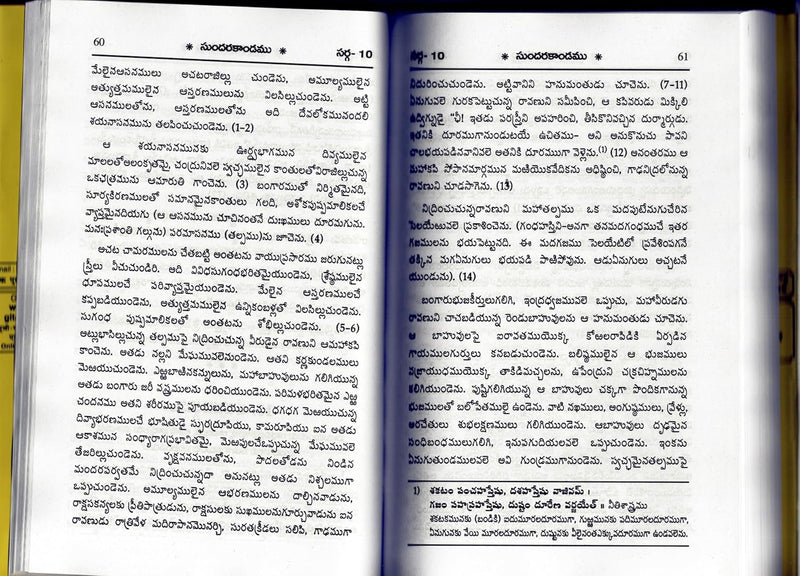 60
* సుందరకాండము *
సర్గ- 10
మేలైనఆసనములు అచటరాజిల్లు చుండెను, అమూల్యములైన
అత్యుత్తమములైన ఆస్తరణములును విలసిల్లుచుండెను. అట్టి
ఆసనములతోను, ఆస్తరణములతోను అది దేవలోకమునందలి
శయనాసనమును తలపించుచుండెను. (1-2)
ఆ శయనాసనమునకు ఊర్ధ్వభాగమున దివ్యములైన
మాలలతోఅలంకృతమై, చంద్రునివలె స్వచ్ఛములైన కాంతులతోవిరాజిల్లుచున్న
ఒకఛత్రమును ఆమారుతి గాంచెను. (3) బంగారముతో నిర్మితమైనది,
సూర్యకిరణములతో సమానమైనకాంతులు గలది, అశోకపుష్పమాలికలచే
వ్యాప్తమైనదియగు (ఆ ఆసనమును చూచినంతనే దుఃఖములు దూరమగును.
మనఃప్రశాంతి గల్గును) పరమాసనము (తల్పము)ను జూచెను. (4)
అచట చామరములను చేతబట్టి అంతటను వాయుప్రసారము జరుగునట్లు
స్త్రీలు వీచుచుండిరి. అది వివిధసుగంధభరితమైయుండెను, శ్రేష్ఠములైన
ధూపములచే పరివ్యాప్తమైయుండెను. మేలైన ఆస్తరణములచే
కప్పబడియుండెను, అత్యుత్తమములైన ఉన్నికంబళ్లతో విలసిల్లుచుండెను.
సుగంధ పుష్పమాలికలతో అంతటను శోభిల్లుచుండెను. (5-6)
అట్లుభాసిల్లుచున్న తల్పముపై నిద్రించుచున్న వీరుడైన రావణుని ఆమహాకపి
కాంచెను. అతడు నల్లని మేఘమువలెనుండెను. అతని కర్ణకుండలములు
మెఱయుచుండెను. ఎఱ్ఱబాఱినకన్నులును, మహాబాహువులును గలిగియున్న
అతడు బంగారు జరీ వస్త్రములను ధరించియుండెను. పరిమళభరితమైన ఎఱ్ఱ
చందనము అతని శరీరముపై పూయబడియుండెను. ధగధగ మెఱయుచున్న
దివ్యాభరణములచే భూషితుడై స్ఫురద్రూపియు, కామరూపియు ఐన అతడు
ఆకాశమున సంధ్యారాగప్రభావితమై, మెఱపులచేఒప్పుచున్న మేఘమువలె
తేజరిల్లుచుండెను. వృక్షవనములతోను, పొదలతోడను నిండిన
మందరపర్వతమే నిద్రించుచున్నదా అనునట్లు అతడు నిశ్చలముగా
ఒప్పుచుండెను. అమూల్యములైన ఆభరణములను దాల్చినవాడును,
రాక్షసకన్యలకు ప్రీతిపాత్రుడును, రాక్షసులకు సుఖములనుగూర్చువాడును ఐన
రావణుడు రాత్రివేళ మదిరాపానమొనర్చి, సురతక్రీడలు సలిపి, గాఢముగా
సర్గ- 10
* సుందరకాండము *
61
నిదురించుచుండెను. అట్టివానిని హనుమంతుడు చూచెను. (7-11)
ఏనుగువలె గురకపెట్టుచున్న రావణుని సమీపించి, ఆ కపివరుడు మిక్కిలి
ఉద్విగ్నుడై "ఛీ! ఇతడు పరస్త్రీని అపహరించి, తీసికొనివచ్చిన దుర్మార్గుడు.
ఇతనికి దూరముగానుండుటయే ఉచితము- అని అనుకొనుచు పావని
చాలభయపడినవానివలె అతనికి దూరముగా వెళ్లెను.(1) (12) అనంతరము ఆ
మహాకపి సోపానమార్గమున మఱియొకవేదికను అధిష్ఠించి, గాఢనిద్రలోనున్న
రావణుని చూడసాగెను. (13)
నిద్రించుచున్నరావణుని మహాతల్పము ఒక మదపుటేనుగుచేరిన
సెలయేఱువలె ప్రకాశించెను. (గంధహస్తిని-అనగా తనమదగంధముచే ఇతర
గజములను భయపెట్టునది. ఈ మదగజము సెలయేటిలో ప్రవేశింపగనే
తక్కిన మగఏనుగులు భయపడి పాఱిపోవును. ఆడుఏనుగులు అచ్చటనే
యుండును). (14)
బంగారుభుజకీర్తులుగలిగి, ఇంద్రధ్వజమువలె ఒప్పుచు, మహావీరుడగు
రావణుని చాచబడియున్న రెండుబాహువులను ఆ హనుమంతుడు చూచెను.
ఆ బాహువులపై ఐరావతముయొక్క కోఱలరాపిడికి ఏర్పడిన
గాయములగుర్తులు కనబడుచుండెను. బలిష్ఠములైన ఆ భుజములు
వజ్రాయుధముయొక్క తాకిడిమచ్చలను, ఉపేంద్రుని చక్రచిహ్నములను
కలిగియుండెను. పుష్టిగలిగియున్న ఆ బాహువులు చక్కగా పొందికగానున్న
భుజములతో బలోపేతములై ఉండెను. వాటి నఖములు, అంగుష్ఠములు, వ్రేళ్లు,
అరచేతులు శుభలక్షణములు గలిగియుండెను. ఆబాహువులు దృఢమైన
సంధిబంధములుగలిగి, ఇనుపగుదియలవలె ఒప్పుచుండెను. ఇంకను
ఏనుగుతుండములవలె అవి గుండ్రముగానుండెను. స్వచ్ఛమైనతల్పముపై
1) శకటం పంచహస్తేషు, దశహస్తేషు వాజినమ్ ।
గజం సహస్రహస్తేషు, దుష్టం దూరేణ వర్జయేత్ ॥ నీతిశాస్త్రము
శకటమునకు (బండికి) ఐదుమూరలదూరముగా, గుఱ్ఱమునకు పదిమూరలదూరముగా,
ఏనుగునకు వేయి మూరలదూరముగా, దుష్టునకు వీలైనంతఎక్కువదూరముగా ఉండవలెను.